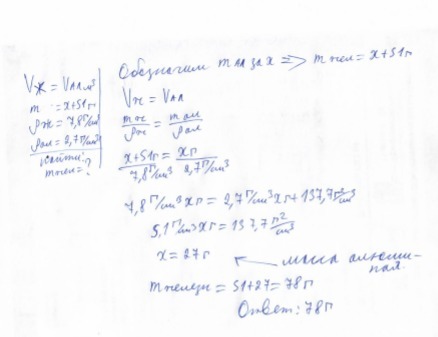 Vж = Vал м³
m = x+51г
ρж = 7,8 г/см³
ρал = 2,7 г/см³
найти:
m жел = ?
Обозначим m ал за x => m жел = x+51г
Vж = Vал
mж/ρж = mал/ρал
x+51г/7,8г/см³ = xг/2,7г/см³
7,8г/см³ xг = 2,7г/см³ xг+137,7г²/см³
5,1г/см³ xг = 137,7 г²/см³
x = 27г
масса алюми-
ния.
m железн = 51+27 = 78г
Ответ: 78г